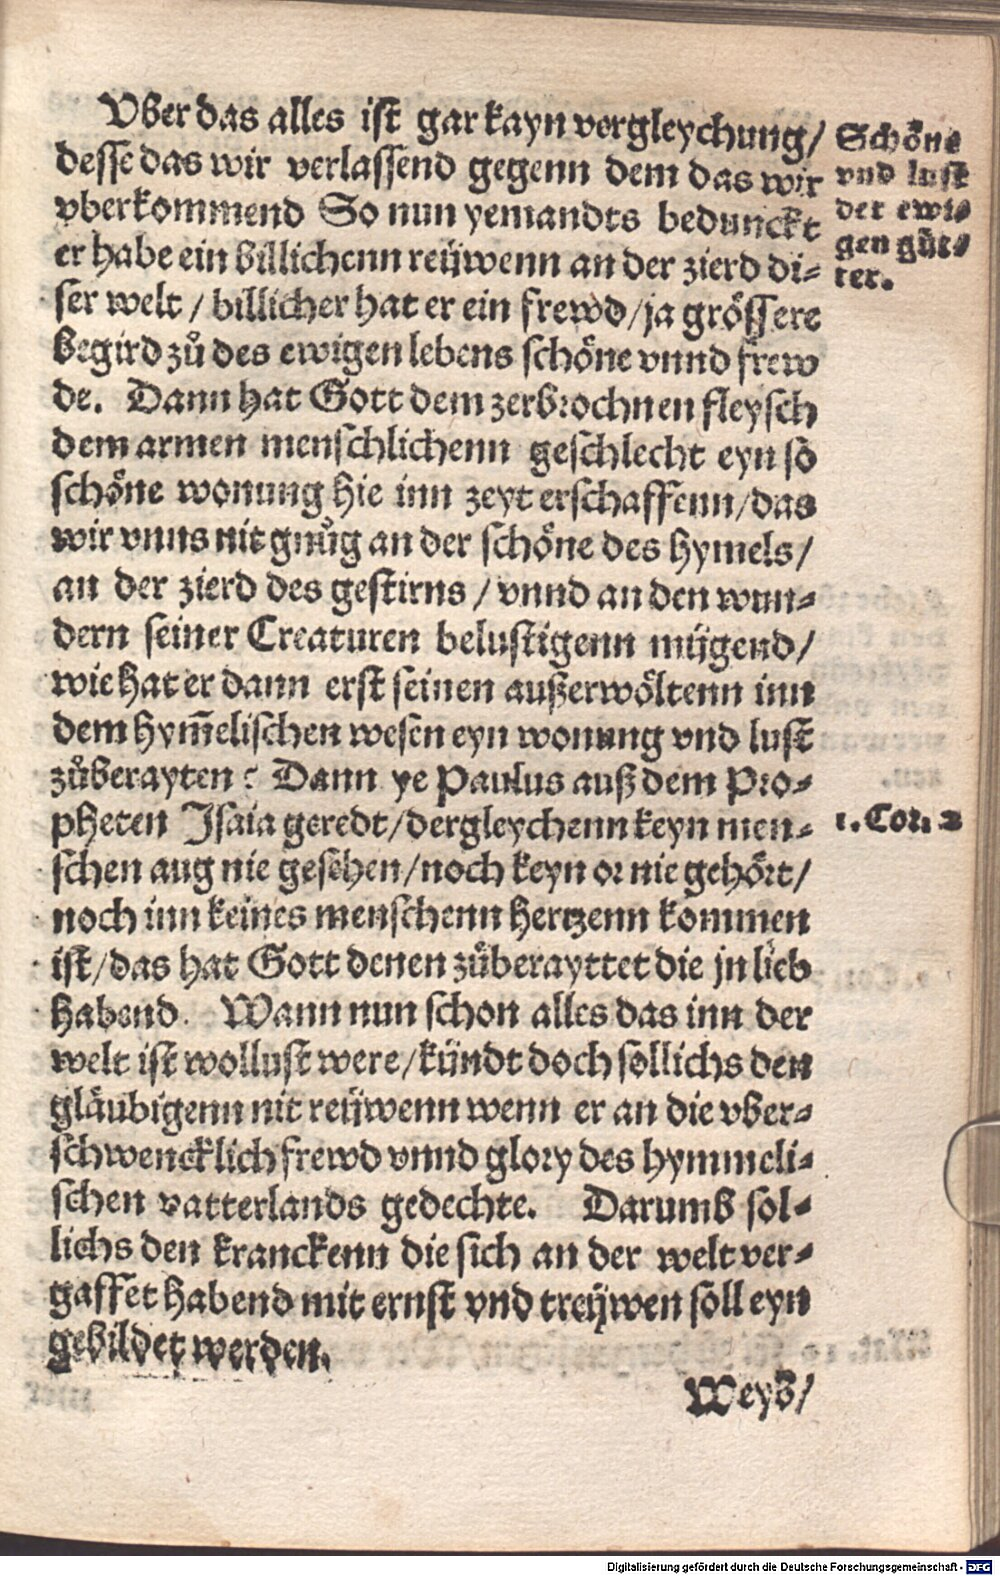 Vber das alles ist gar kayn vergleychung/
desse das wir verlassend gegenn dem das wir
vberkommend So nun yemandts bedunckt
er habe ein billichenn reüwenn an der zierd di⸗
ser welt / billicher hat er ein frewd/ja grössere
begird zů des ewigen lebens schöne vnnd frew
de. Dann hat Gott dem zerbrochnen fleysch
dem armen menschlichenn geschlecht eyn so
schöne wonung hie inn zeyt erschaffenn/das
wir vnns nit gnůg an der schöne des hymels/
an der zierd des gestirns / vnnd an den wun⸗
dern seiner Creaturen belustigenn mügend/
wie hat er dann erst seinen außerwöltenn inn
dem hym̄elischen wesen eyn wonung vnd lust
zůberayten? Dann ye Paulus auß dem Pro⸗
pheten Isaia geredt/dergleychenn keyn men⸗
schen aug nie gesehen/noch keyn or nie gehört/
noch inn keines menschenn hertzenn kommen
ist/das hat Gott denen zůberayttet die jn lieb
habend. Wann nun schon alles das inn der
welt ist wollust were/kündt doch sollichs den
gläubigenn nit reüwenn wenn er an die vber⸗
schwencklich frewd vnnd glory des hymmeli⸗
schen vatterlands gedechte. Darumb sol⸗
lichs den kranckenn die sich an der welt ver⸗
gaffet habend mit ernst vnd treüwen soll eyn
gebildet werden.
Weyß/
Schöne
vnd lust
der ewi⸗
gen güt⸗
ter.
1. Cor. 2
Digitalisierung gefördert durch die Deutsche Forschungsgemeinschaft - DFG